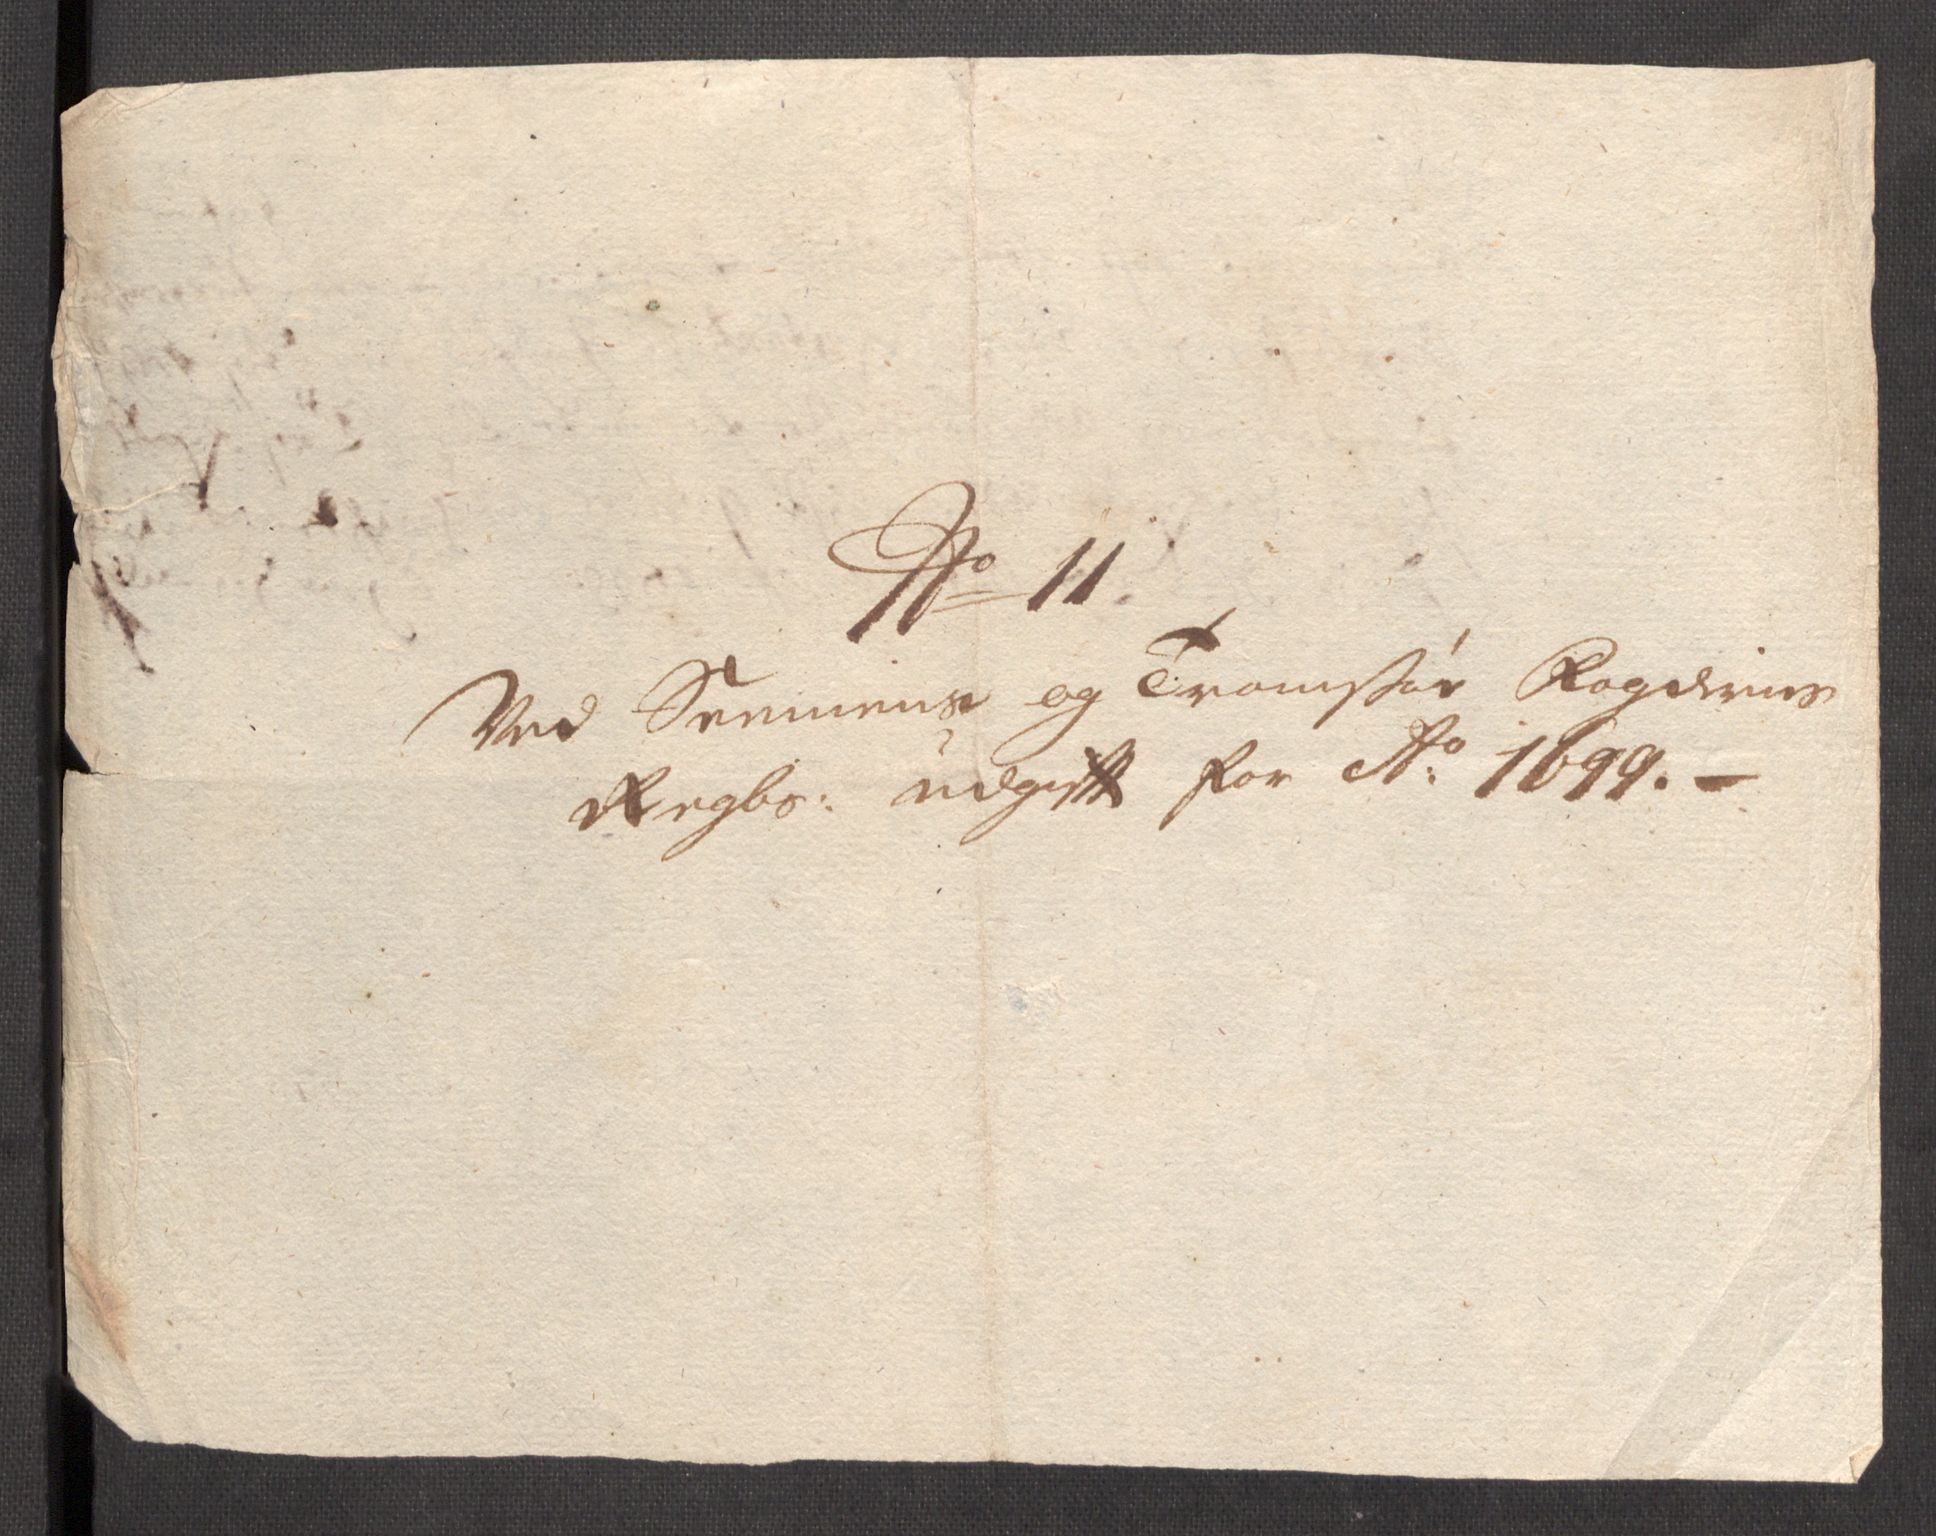 No 11.
Ved Senniens og Tromsøe Fogderies
Regbs: udgift for Ao: 1699. –